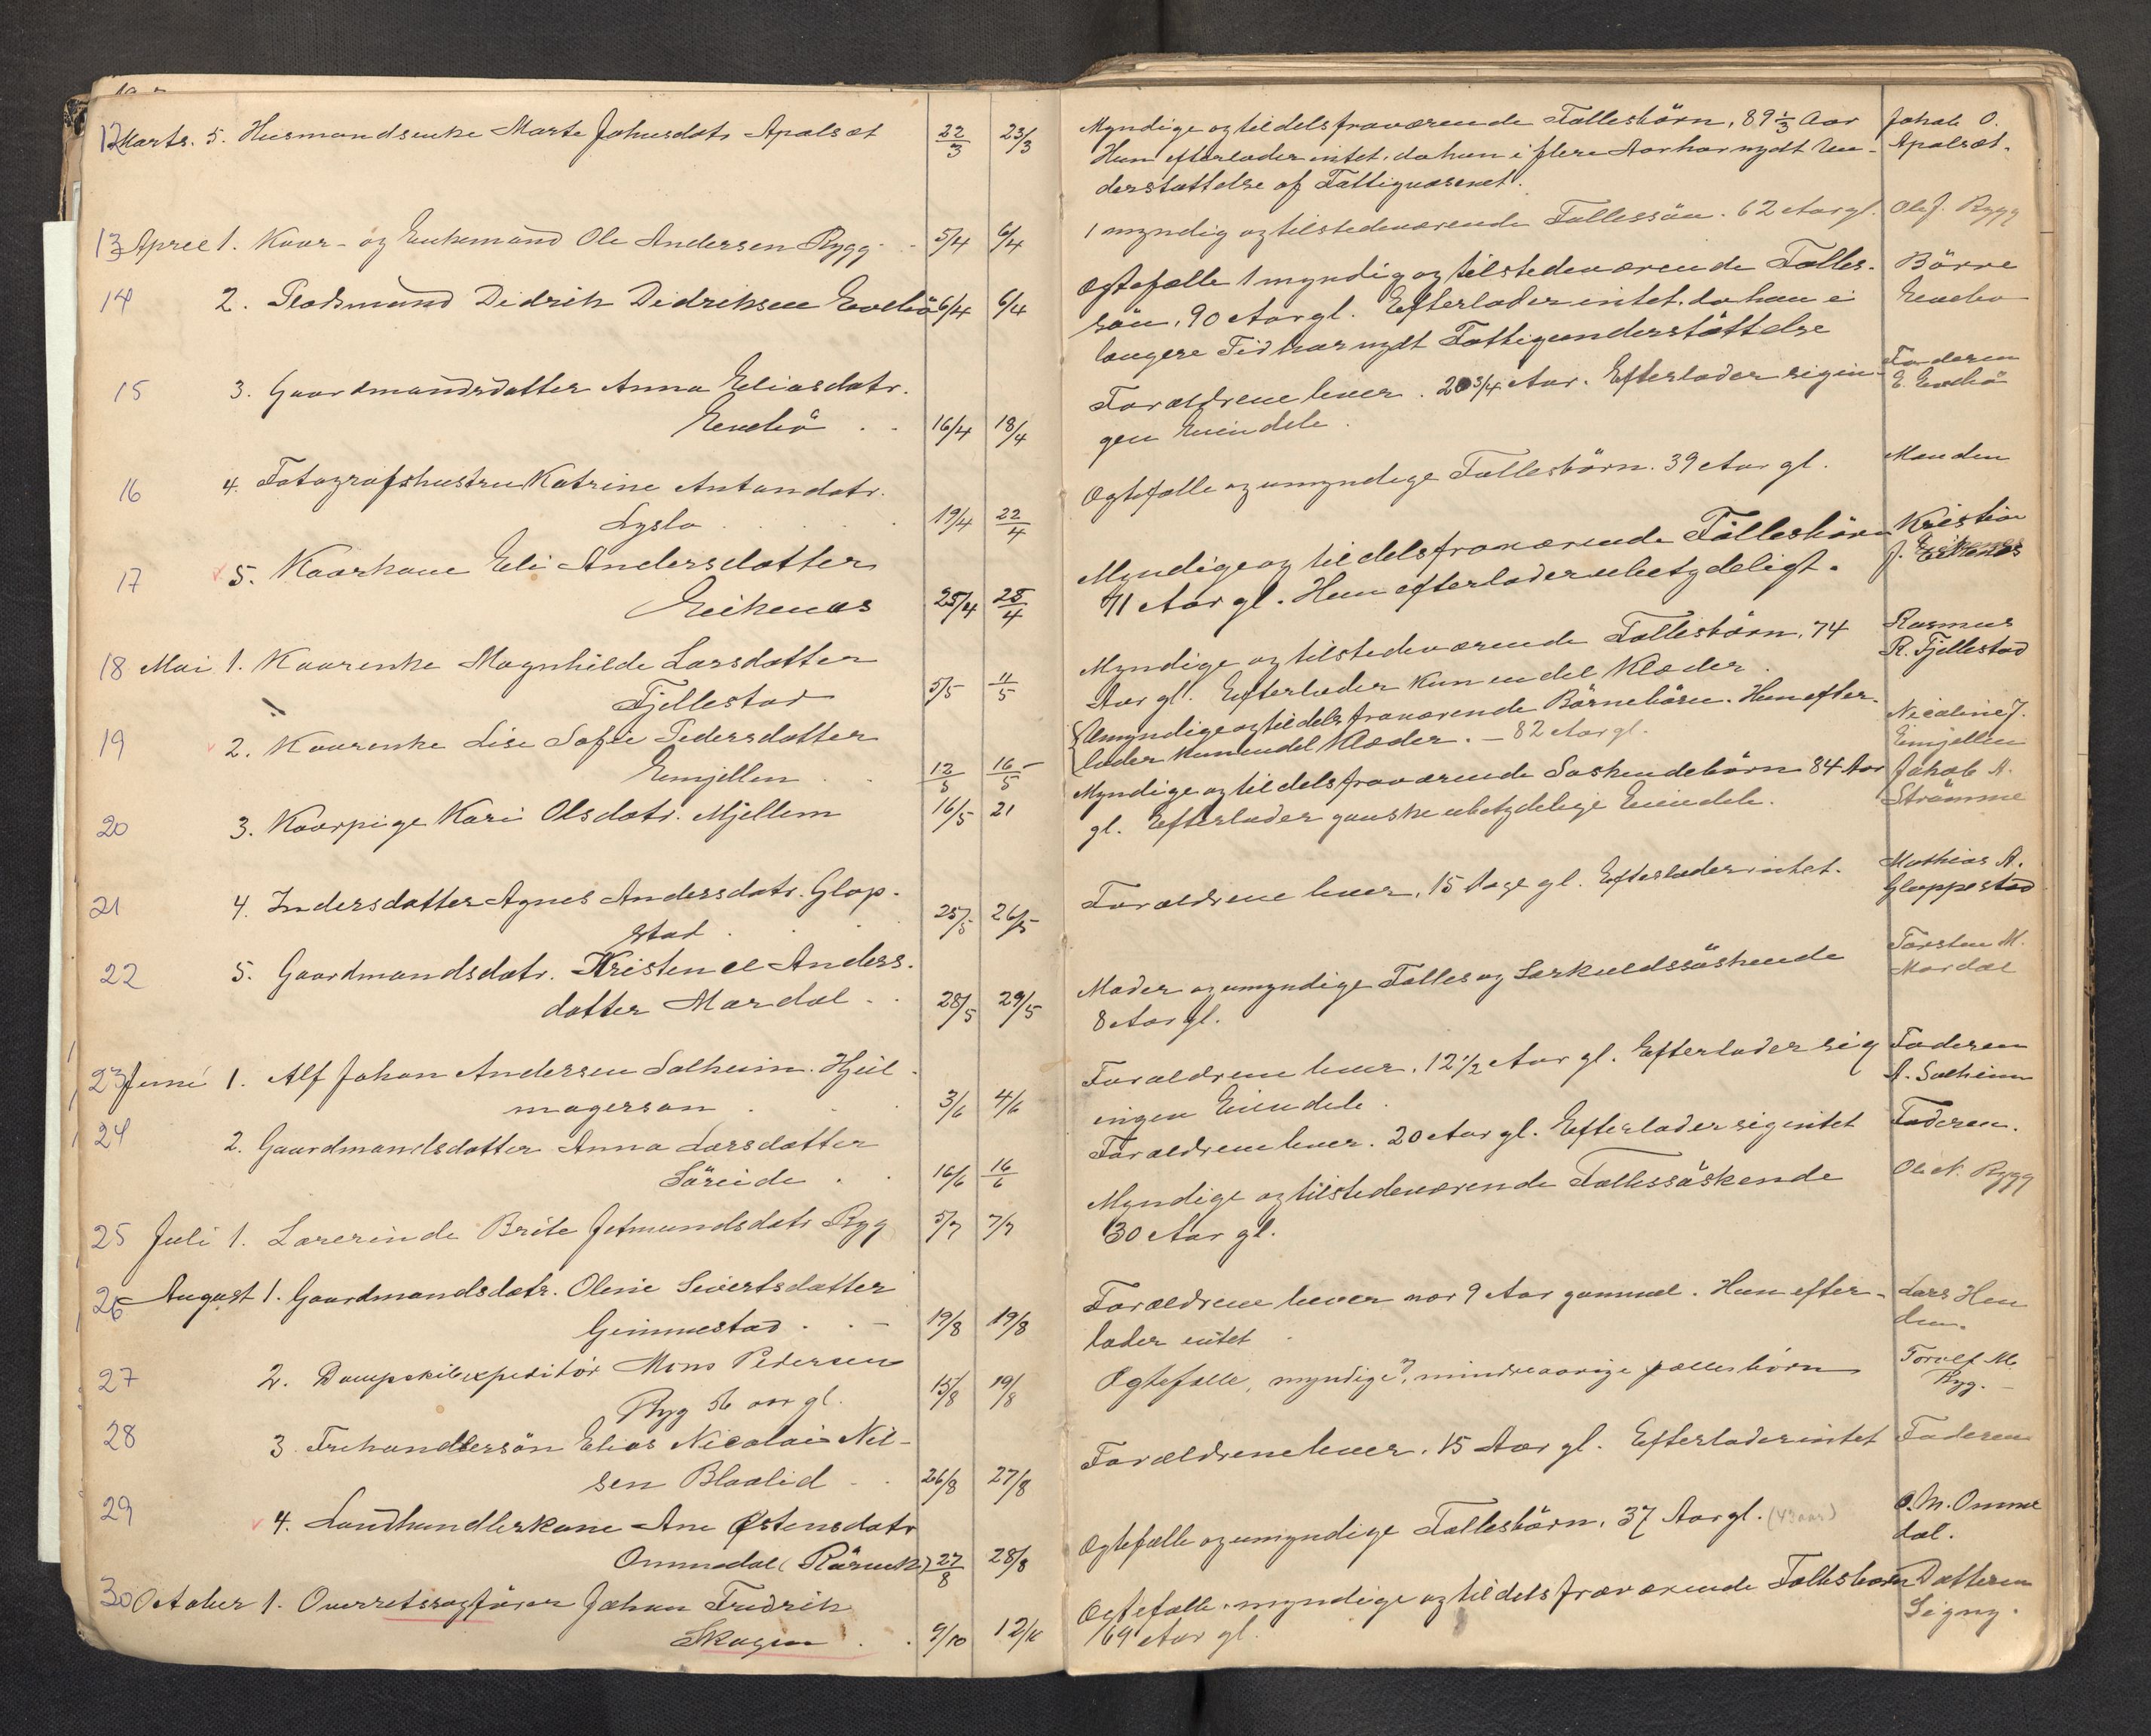 12 Marts. 5. Husmandsenke Marte Johnsdatr Apalset 22/3 23/3
Myndige og tildels fraværende Fællesbörn, 89 1/3 Aar
Hun efterlader intet, da hun i flere Aar har nydt Un-
derstøttelse af Fattigvæsenet.
Jakob O.
Apalset.
13 April 1. Kaar- og Enkemand Ole Andersen Rygg 5/4 6/4
1 myndig og tilstedeværende Fællessön. 62 Aar gl.
Ole J. Rygg
14 2. Pladsmand Didrik Didriksen Evebö 6/4 6/4
Ægtefælle 1 myndig og tilstedeværende Fælles-
sön, 90 Aar gl. Efterlader intet, da han i
længere Tid har nydt Fattigunderstöttelse
Börre
Evebö
15 3. Gaardmandsdatter Anna Eliasdatr.
Evebö 16/4 18/4
Forældrene lever. 20 3/4 Aar. Efterlader sig in-
gen Eiendele.
Faderen
E. Evebö
16 4. Fotografshustru Katrine Antondatr.
Lyslo 19/4 22/4
Ægtefælle og umyndige Fællesbörn. 39 Aar gl.
Manden
17 5. Kaarkone Eli Andersdatter
Eikenæs 25/4 28/4
Myndige og tildels fraværende Fællesbörn
71 Aar gl. Hun efterlader ubetydeligt.
Kristian
J. Eikenæs
18 Mai 1. Kaarenke Magnhilde Larsdatter
Fjellestad 5/5 11/5
Myndige og tilstedeværende Fællesbörn, 74
Aar gl. Efterlader kun en del Klæder.
Rasmus
R. Fjellestad
19 2. Kaarenke Lise Sofie Pedersdatter
Emjellen 12/5 16/5
Umyndige og tildels fraværende Börnebörn. Hun efter-
lader kun en del Klæder. - 82 Aar gl.
Nicoline J.
Eimjellen
20 3. Kaarpige Kari Olsdatr. Mjellem 16/5 21
Myndige og tildels fraværende Søskendebörn 84 Aar
gl. Efterlader ganske ubetydelige Eiendele.
Jakob A.
Strömme
21 4. Indersdatter Agnes Andersdatr. Glop-
stad 25/5 26/5
Forældrene lever, 15 Dage gl. Efterlader intet.
Mathias A.
Gloppestad
22 5. Gaardmandsdatr. Kristence Anders-
datter Mardal 28/5 29/5
Moder og umyndige Fælles og Særkuldssöskende
8 Aar gl.
Torsten M.
Mardal
23 Juni 1. Alf Johan Andersen Solheim. Hjul-
magersøn 3/6 4/6
Forældrene lever, 12 1/2 Aar gl. Efterlader sig
ingen Eiendele.
Faderen
A. Solheim
24 2. Gaardmandsdatter Anna Larsdatter
Söreide 16/6 16/6
Forældrene lever. 20 Aar gl. Efterlader sig intet
Faderen.
25 Juli 1. Lærerinde Brite Jetmundsdatr Ryg 5/7 7/7
Myndige og tilstedeværende Fællessöskende
30 Aar gl.
Ole N. Rygg
26 August 1. Gaardmandsdatr. Oline Sivertsdatter
Gimmestad 19/8 19/8
Forældrene lever nær 9 Aar gammel. Hun efter-
lader intet.
Lars Hen
den.
27 2. Dampskibsexpeditör Mons Pedersen
Ryg 56 aar gl. 15/8 19/8
Ægtefælle, myndige og mindreaarige fællesbörn
Torolf M.
Ryg.
28 3. Frihandlersön Elias Nicolai Nil-
sen Blaalid 26/8 27/8
Forældrene lever, 15 Aar gl. Efterlader intet
Faderen
29 4. Landhandlerkone Ane Østensdatr
Ommedal (Rörvik) 27/8 28/8
Ægtefælle og umyndige Fællesbörn, 37 Aar gl. (43 aar)
O. M. Omme
dal.
30 October 1. Overretssagförer Johan Fredrik
Skagen 9/10 12/10
Ægtefælle, myndige og tildels fraværende Fællesbörn
69 Aar gl.
Datteren
Signy.